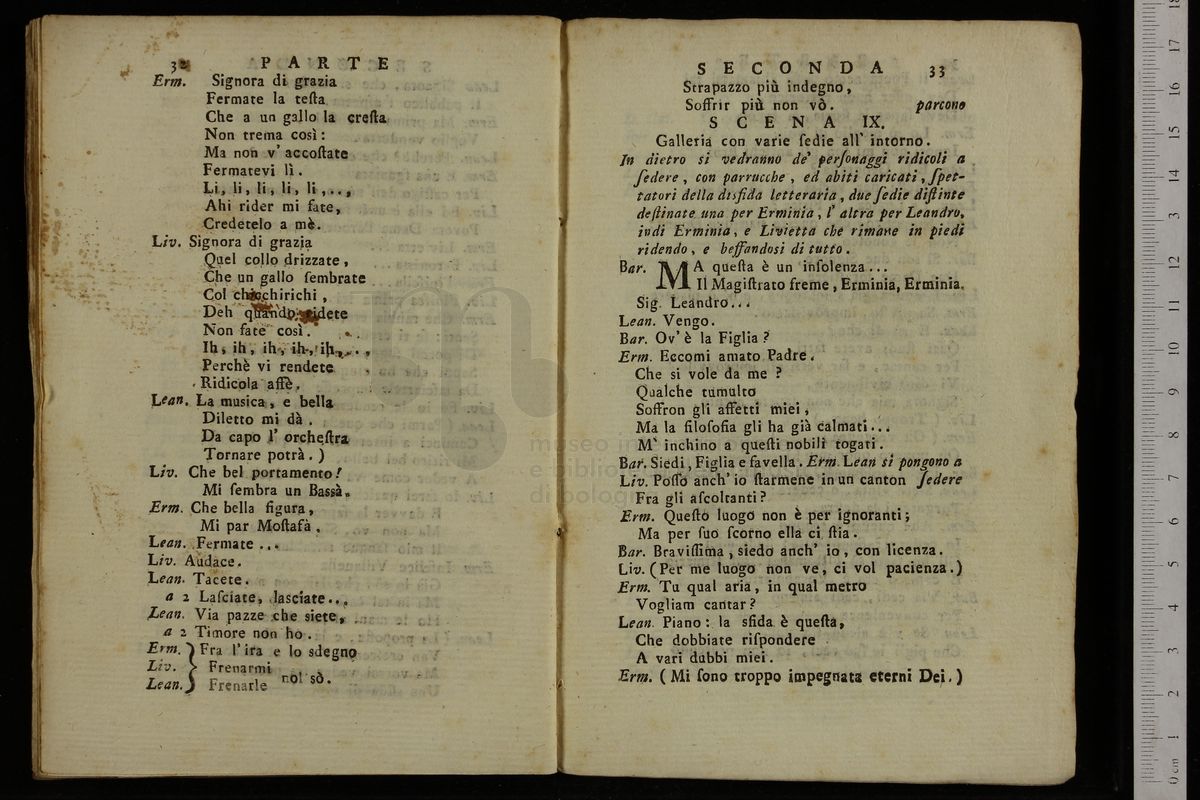 32 PARTE
Erm. Signora di grazia
Fermate la teſta
Che a un gallo la creſta
Non trema così:
Ma non v' accoſtate
Fermatevi lì.
Li, li, li, li, li,..,
Ahi rider mi fate,
Credetelo a mè.
Liv. Signora di grazia
Quel collo drizzate,
Che un gallo ſembrate
Col chicchirichi,
Deh quando ridete
Non fate così.
Ih, ih, ih, ih, ih,...,
Perchè vi rendete
Ridicola affè.
Lean. La musica, e bella
Diletto mi dà.
Da capo l' orcheſtra
Tornare potrà.)
Liv. Che bel portamento!
Mi ſembra un Bassà.
Erm. Che bella figura,
Mi par Moſtafà.
Lean. Fermate...
Liv. Audace.
Lean. Tacete.
a 2 Laſciate, laſciate...
Lean. Via pazze che siete,
a 2 Timore non ho.
Erm. } Fra l'ira e lo sdegno
Liv. } Frenarmi nol sò.
Lean. } Frenarle
SECONDA 33
Strapazzo più indegno,
Soffrir più non vò. parcono
SCENA IX.
Galleria con varie ſedie all' intorno.
In dietro si vedranno de' perſonaggi ridicoli a
ſedere, con parrucche, ed abiti caricati, ſpet-
tatori della disfida letteraria, due ſedie diſtinte
deſtinate una per Erminia, l' altra per Leandro,
indi Erminia, e Livietta che rimane in piedi
ridendo, e beffandosi di tutto.
Bar. MA queſta è un inſolenza...
Il Magiſtrato freme, Erminia, Erminia.
Sig. Leandro...
Lean. Vengo.
Bar. Ov' è la Figlia?
Erm. Eccomi amato Padre.
Che si vole da me?
Qualche tumulto
Soffron gli affetti miei,
Ma la filoſofia gli ha già calmati...
M' inchino a queſti nobili togati.
Bar. Siedi, Figlia e favella. Erm. Lean si pongono a
Liv. Poſſo anch' io ſtarmene in un canton ſedere
Fra gli aſcoltanti?
Erm. Queſto luogo non è per ignoranti;
Ma per ſuo ſcorno ella ci ſtia.
Bar. Braviſſima, siedo anch' io, con licenza.
Liv. (Per me luogo non ve, ci vol pacienza.)
Erm. Tu qual aria, in qual metro
Vogliam cantar?
Lean. Piano: la sfida è queſta,
Che dobbiate riſpondere
A vari dubbi miei.
Erm. (Mi ſono troppo impegnata eterni Dei.)